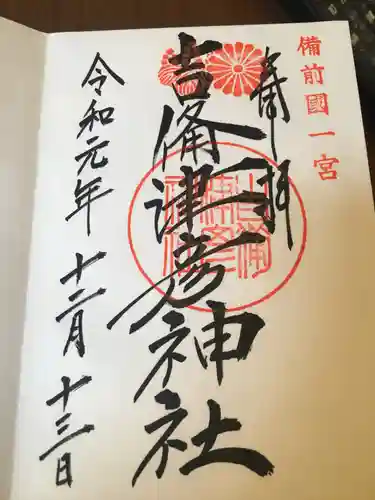 備前國一宮
奉拝
吉備津彦神社
令和元年 十二月 十三日